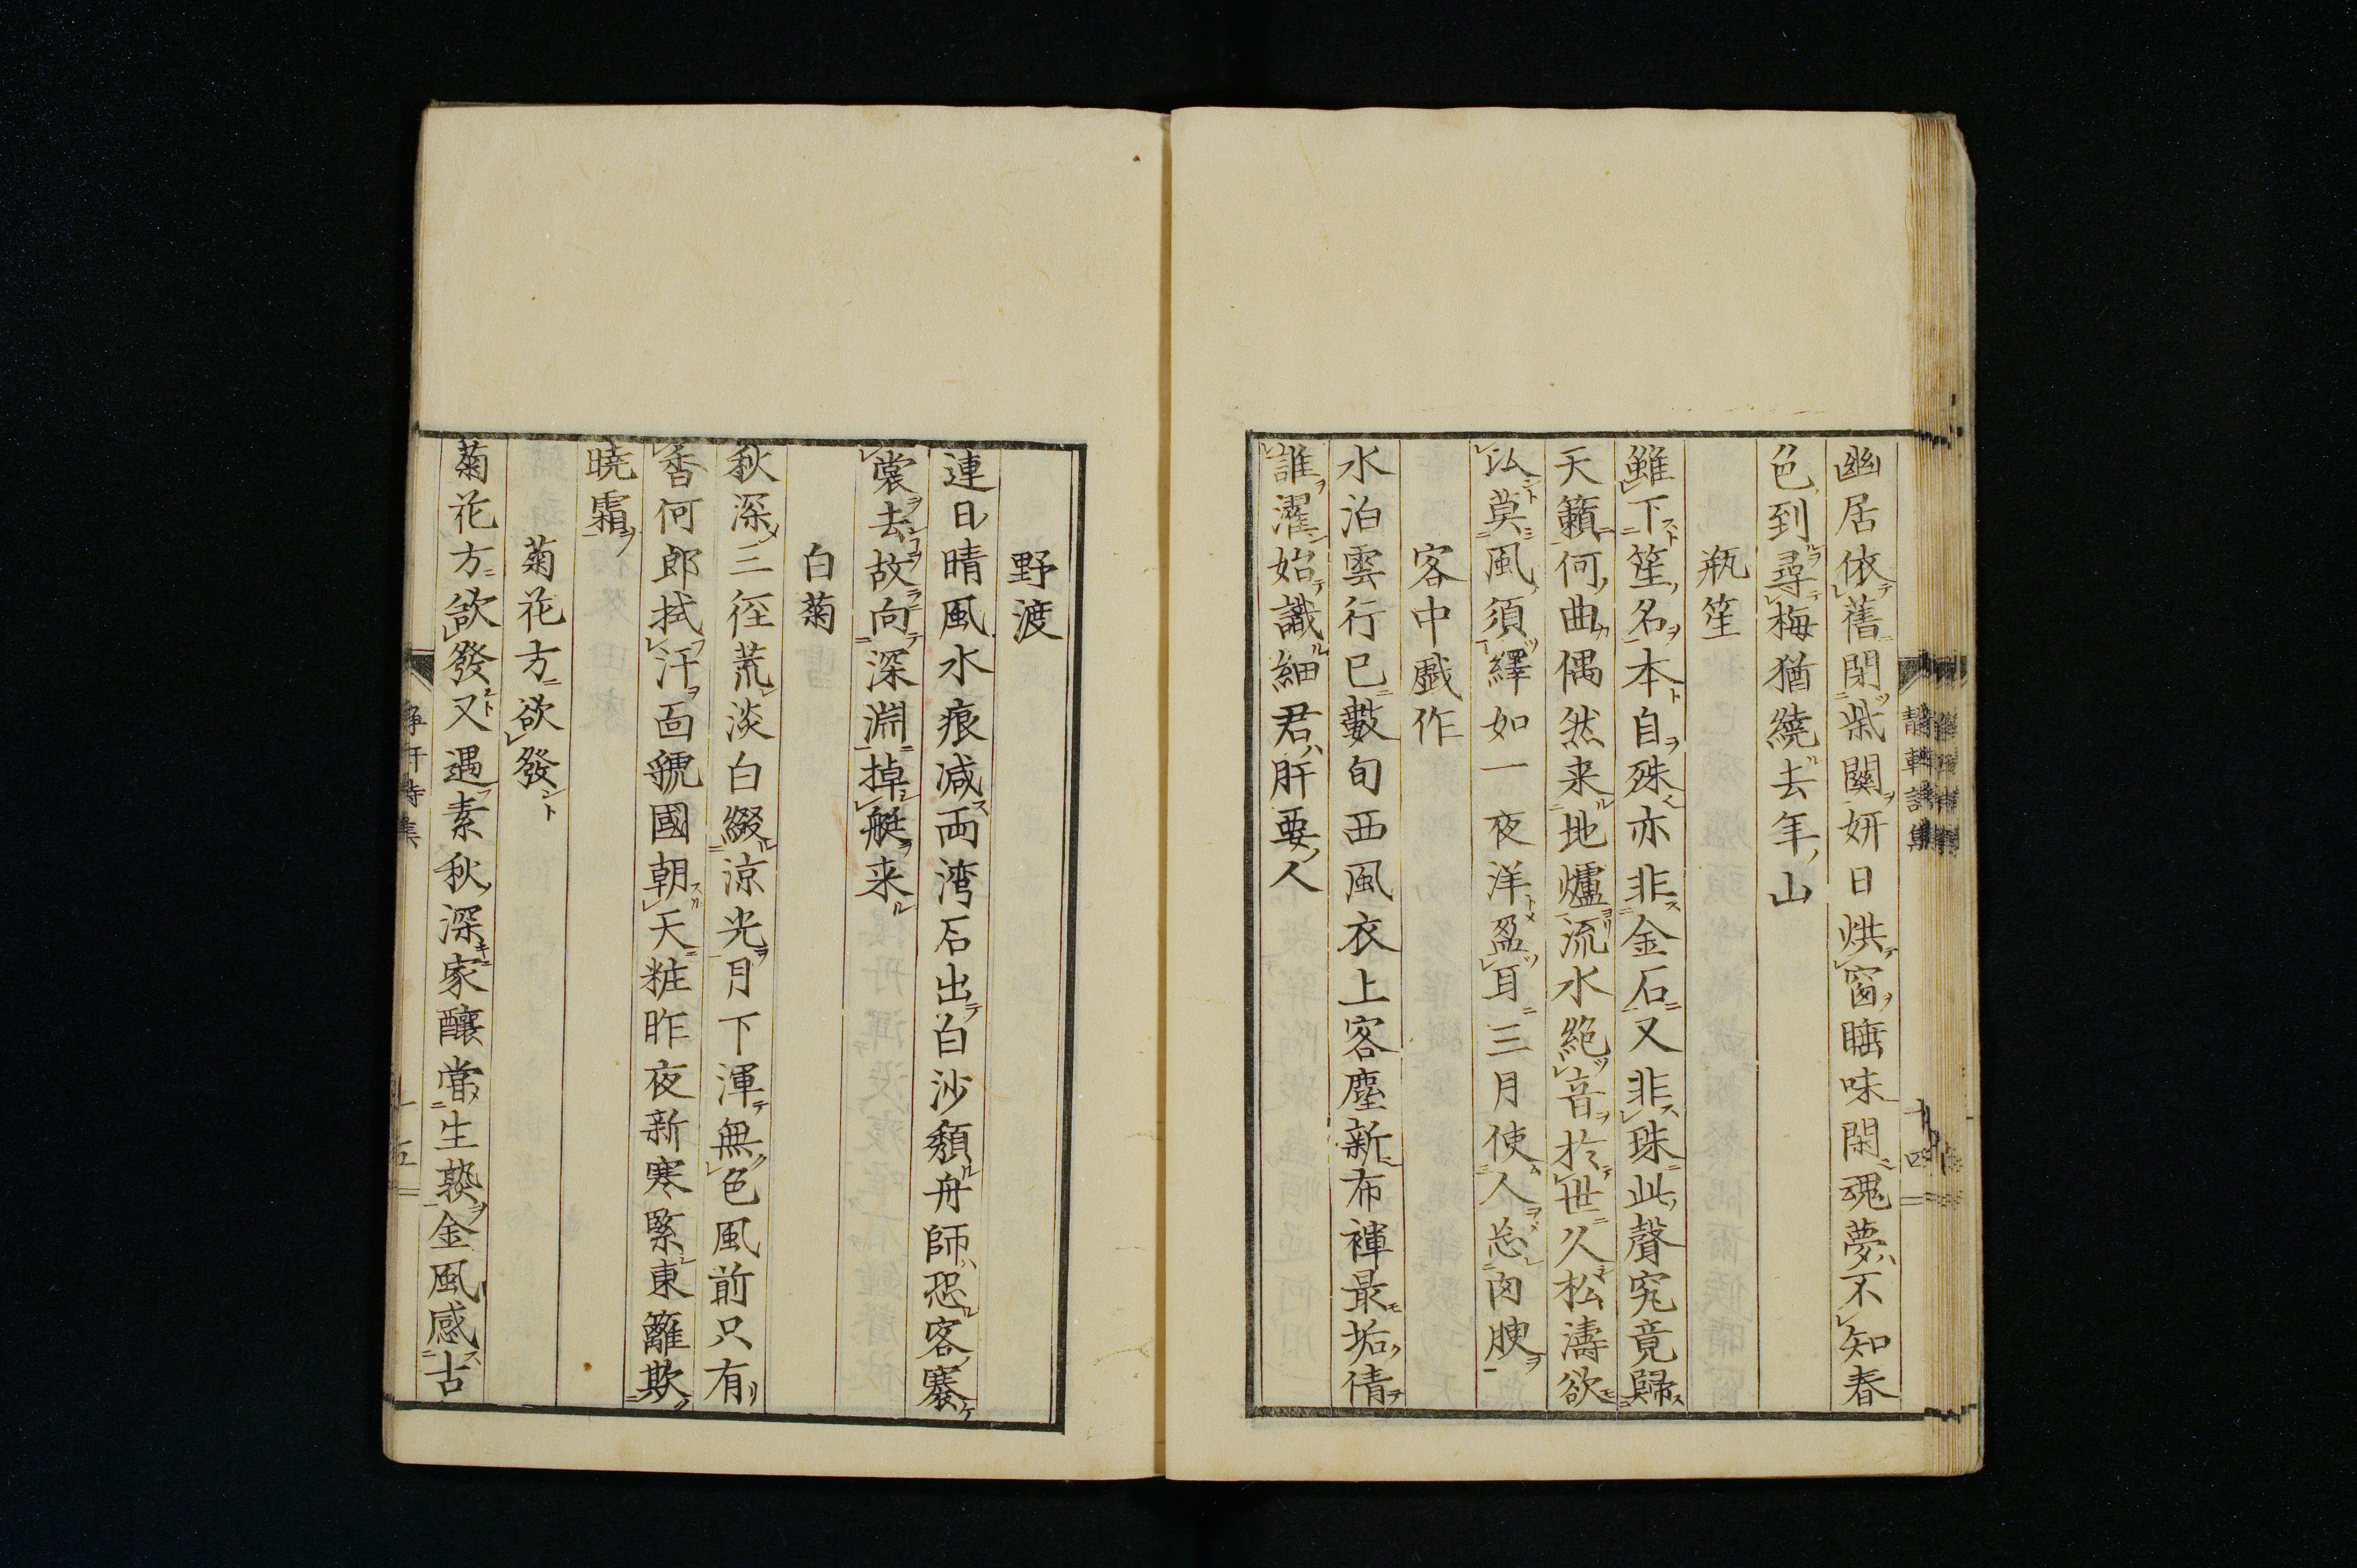 幽居依舊閉柴關妍日烘窗睡味閑魂夢不知春
色到尋梅猶繞去年山
瓶笙
雖下笙名本自殊亦非金石又非珠此聲究竟歸
天籟何曲偶然来地爐流水絶音於世久松濤欲
以莫風須繹如一夜洋盈耳三月使人忘肉腴
客中戯作
水泊雲行已數旬西風衣上客塵新布褌最垢倩
誰濯始識細君肝要人
靜軒詩集
十四
野渡
連日晴風水痕減両湾石出白沙頽舟師恐客褰
裳去故向深淵掉艇来
白菊
秋深三径荒淡白綴涼光月下渾無色風前只有
香何郎拭汗面虢國朝天粧昨夜新寒緊東籬欺
曉霜
菊花方欲發
菊花方欲發又遇素秋深家釀當生熟金風感古